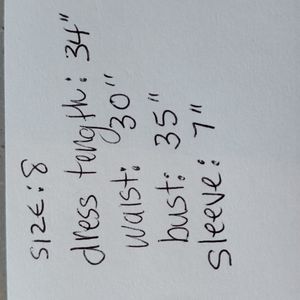 size: 8
dress length: 34"
waist: 30"
bust: 35"
sleeve: 7"